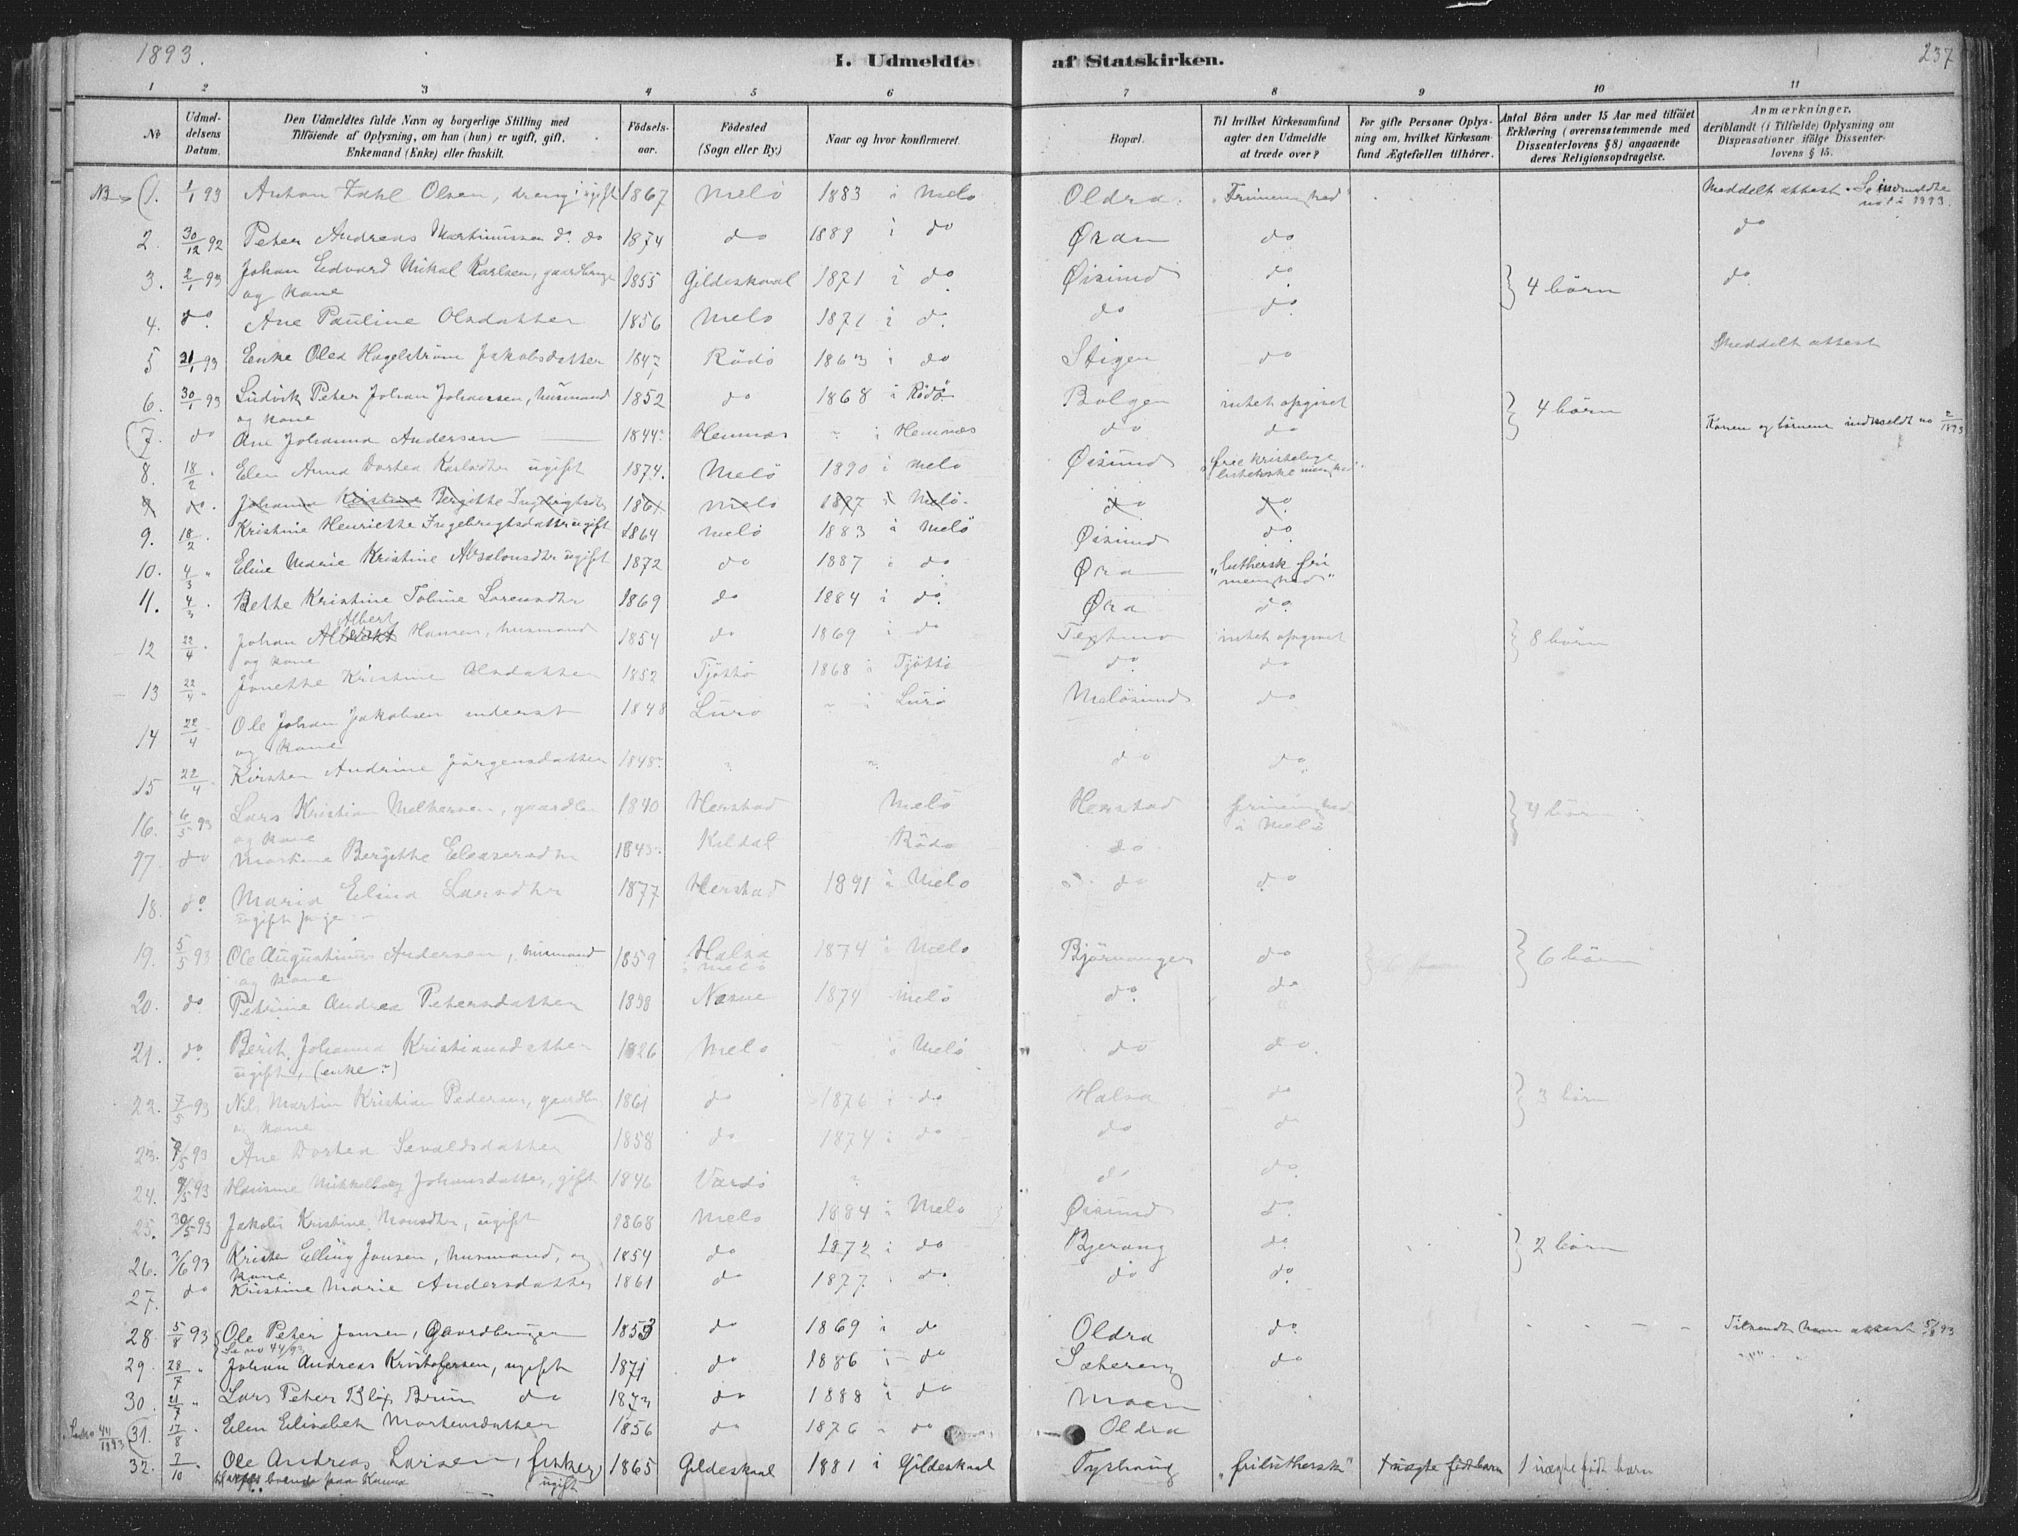 1893.
I. Udmeldte af Statskirken.
237
1 2 3 4 5 6 7 8 9 10 11
No
Udmel-
delsens
Datum.
Den Udmeldtes fulde Navn og borgerlige Stilling med
Tilföiende af Oplysning, om han (hun) er ugift, gift,
Enkemand (Enke) eller fraskilt.
Födsels-
aar.
Födested
(Sogn eller By.)
Naar og hvor konfirmeret.
Bopæl.
Til hvilket Kirkesamfund
agter den Udmeldte
at træde over?
For gifte Personer Oplys-
ning om, hvilket Kirkesam-
fund Ægtefællen tilhörer.
Antal Börn under 15 Aar med tilföiet
Erklæring (overensstemmende med
Dissenterlovens § 8) angaaende
deres Religionsopdragelse.
Anmærkninger,
deriblandt (i Tilfælde) Oplysning om
Dispensationer ifölge Dissenter-
lovens § 15.
NB 1. 1/1 93 Anton Zahl Olsen, dreng ugift 1867 Melö 1883 i Melö Oldra. "Frimenighed" Meddelt attest. Se indmeldte no 1 i 1893.
2. 30/12 92 Peter Andreas Martinussen do. do 1874 do 1889 i do Øran do do
3. 2/1 93 Johan Edvard Mikal Karlsen, gaardbruger 1855 Gildeskaal 1871 i do. Øisund do 4 börn do.
og kone
4. do. Ane Pauline Olsdatter 1856 Melö 1871 i do. do do.
5 31/1 93 Enke Olea Hagelström Jakobsdatter 1847 Rödö 1863 i do Stigen do Meddelt attest
6. 30/1 93 Ludvik Peter Johan Johansen, husmand 1852 do 1868 i Rödö Bolgen intet opgivet 4 börn
og kone
7. do Ane Johanna Andersen 1844 Hemnæs " i Hemnæs do do Konen og börnene indmeldt no 2/1893
8. 18/2 Elen Anna Dortea Karlsdtr ugift 1874. Melö 1890 i Melö Øisund "frie kristelige
lutherske menighed"
9 do. Johanna Kristine Bergitte Ingebrigtsdtr 1861 Melö 1877 i Melö. do do.
9. 18/2. Kristine Henriette Ingebrigtsdatter ugift 1864 Melö 1883 i Melö Øisund do.
10. 4/3 " Eline Marie Kristine Absalonsdtr ugift 1872 do 1887 i do Øra "luthersk fri
menighed"
11. 4/3. Bette Kristine Toline Lorensdtr 1869 do 1884 i do. Øra do.
Albert
12 22/4. Johan Hansen, husmand 1854 do 1869 i do intet opgivet 8 börn
og kone
13 22/4. Jonette Kristine Olsdatter 1852 Tjöttö 1868 i Tjöttö do. do
14 22/4 Ole Johan Jakobsen inderst 1848 Lurö " i Lurö Melösund do
og kone
15 22/4 Kirsten Andrine Jörgensdatter 1848 " " do do.
16. 6/5 93 Lars Kristian Melkersen, gaardbr 1840 Herstad Melö Herstad frimenighed
i Melö 4 börn
og kone
17. do Martine Bergitte Eleasersdtr 1843 Kildal Rödö do
18. do. Maria Elina Larsdtr 1877 Herstad 1891 i Melö do do
ugift pige
19. 5/5 93 Ole Augustinus Andersen, husmand 1859 Halsa
i Melö 1874 i Melö Bjærangen do 6 börn
og kone
20. do. Petrine Andrea Petersdatter 1858 Næsne 1874 Melö do. do
21. do. Berit Johanna Kristiansdatter 1826 Melö i Melö do do
ugift, (enke?)
22. 7/5 93 Nils Martin Kristian Pedersen, gaardbr 1861 do 1876 i do Halsa do 3 börn
og kone
23. 7/5 93 Ane Dortea Sevaldsdatter 1858 do 1874 i do do do
24. 9/5 93 Johansdatter, gift 1846 Vardö do do
25. 30/5 93 Jakobi Kristine Monsdtr, ugift 1868 Melö 1884 i Melö Øisund do.
26. 2/6 93 Kristen Elling Jonsen, husmand, og 1854 do 1872 i do Bjerang do. 2 börn
kone
27. do Kristine Marie Andersdatter 1861 do 1877 i do do do.
28. 5/8 93 Ole Peter Jonsen, Gaardbruger 1853 do 1869 i do Oldra do Tilsendt ham attest 5/8 93
Se no 44/93
29. 28/7 " Johan Andreas Kristofersen, ugift 1871 do 1886 i do Sætereng do "
30. 21/7 " Lars Peter Blix Brun do 1873 do 1888 i do Moen
Se no 44/1893 31. 17/8. Elen Elisabet Mortensdatter 1856 do 1876 do Oldra
32. 7/10 Ole Andreas Larsen, fisker, 1865 Gildeskaal 1881 i Gildeskaal "frilutherske" 1 uægte född barn 1 uægte född barn
ugift